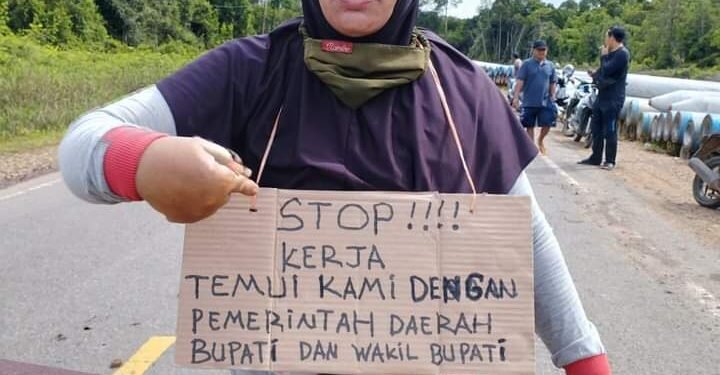 STOP !!!!
KERJA
TEMUI KAMI DENGAN
PEMERINTAH DAERAH
BUPATI DAN WAKIL BUPATI